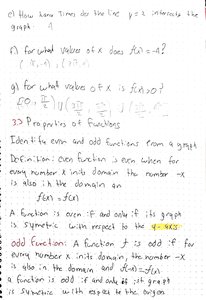 e) How many Times does the line y = 2 intersects the
graph 4
f) for what values of x does f(x) = -4?
g) for what values of x is f(x) > 0?
3.3 Properties of Functions
Identify even and odd functions from a graph
Definition: even function is even when for
every number x in its domain the number -x
is also in the domain an
f(-x) = f(x)
A function is even if and only if its graph
is symetric with respect to the y-axis
odd function: A function f is odd if for
every number x in its domain, the number -x
is also in the domain and f(-x) = f(x)
a function is odd if and only if its graph
is symetric with respect to the origin